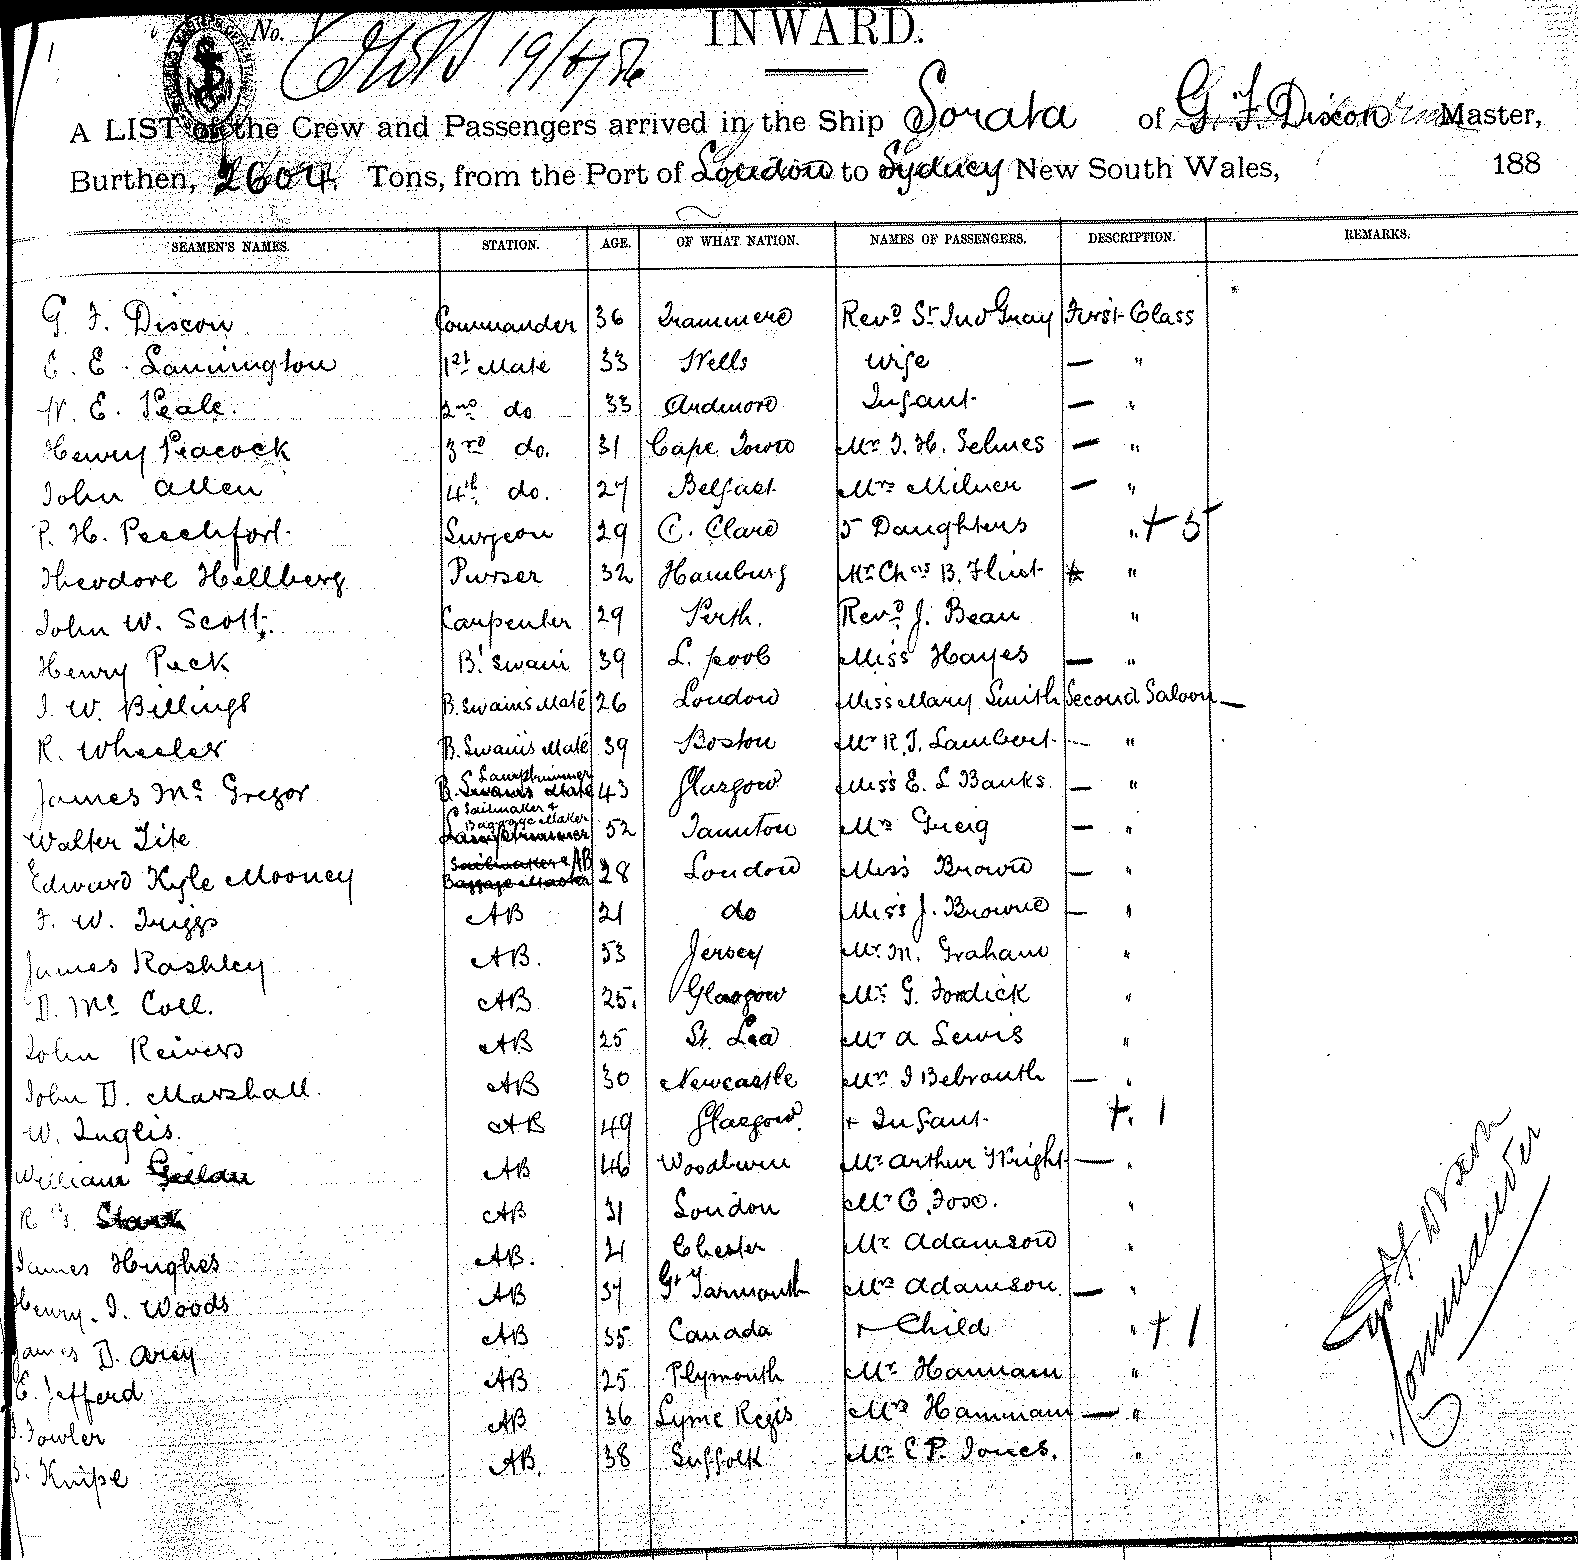 No. 19/4/86
INWARD.
A LIST of the Crew and Passengers arrived in the Ship Sorata of G F Dixon Master,
Burthen, 2604 Tons, from the Port of London to Sydney New South Wales, 188
SEAMEN'S NAMES. STATION. AGE. OF WHAT NATION. NAMES OF PASSENGERS. DESCRIPTION. REMARKS.
G. F. Dixon Commander 36 Tranmere Revd St. Jno Gray First Class
E. Lannington 1st Mate 33 Wells wife — "
W. E. Peale. 2nd do 33 Ardmore Infant — "
Henry Peacock 3rd do. 31 Cape Town Mr. T. H. Selmes — "
John Allen 4th do. 27 Belfast Mrs Milner — "
P. H. Peechfort Surgeon 29 C. Clare 5 Daughters " + 5
Theodore Hellberg Purser 32 Hamburg Mr. Chas B. Flint "
John W. Scott. Carpenter 29 Perth. Revd. J. Bean "
Henry Peck B. Swain 39 L. pool Miss Hayes — "
J. W. Billings B. Swains Mate 26 London Miss Mary Smith Second Saloon —
R. Wheeler B. Swains Mate 39 Boston Mr R. J. Lambert — "
James Mc Gregor Lamptrimmer B. Swains Mate 43 Glasgow Miss E. L Banks. — "
Walter Tite Sailmaker & Baggage Maker Lamptrimmer 52 Taunton Mrs Greig — "
Edward Kyle Mooney Sailmaker & AB Baggage Master 28 London Miss Brown — "
F. W. Triggs AB 21 do Miss J. Browne — "
James Rashley AB. 53 Jersey Mr. M. Graham "
D. Mc Coll. AB 25. Glasgow Mr. G. Fordick "
John Reivers AB 25 St. Lea Mr A Lewis "
John D. Marshall. AB 30 Newcastle Mrs J Bebrouth — "
W. Inglis. AB 49 Glasgow. + Infant +. 1
William AB 46 Woodburn Mr Arthur Wright — "
R Stark AB 31 London Mr C. Foso. "
James Hughes AB. 21 Chester Mr Adamson "
Henry. J. Woods AB 37 Gt Yarmouth Mrs Adamson — "
James D. Arcy AB 35 Canada + Child " + 1
C. Jefferd AB 25 Plymouth Mr. Hannam "
Fowler AB 36 Lyme Regis Mrs Hannam — "
Knipe AB. 38 Suffolk Mr E P. Jones. "
G F. Dixon
Commander